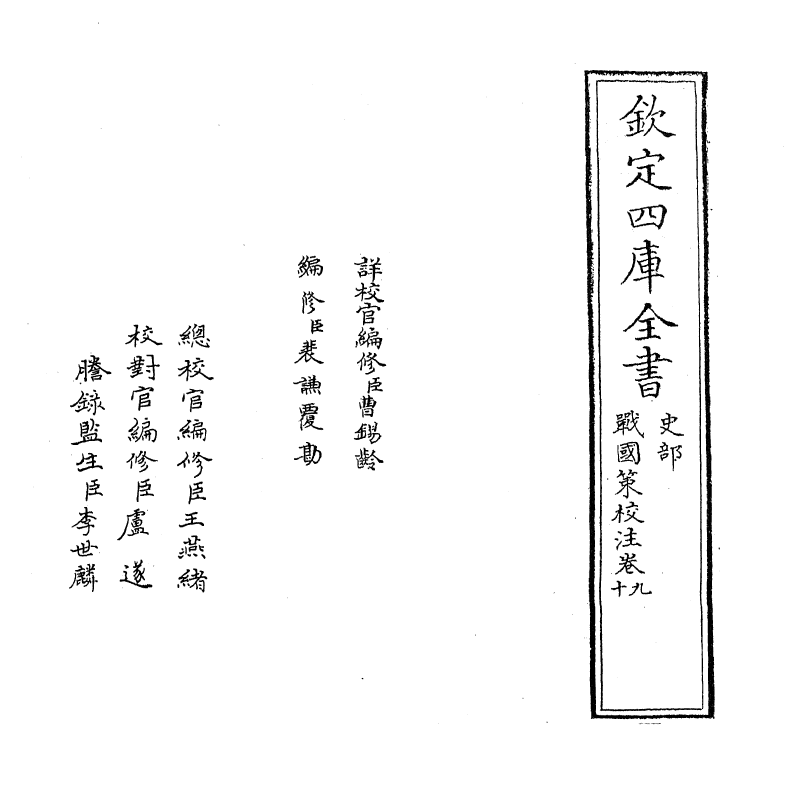 欽定四庫全書
史部
戰國策校注卷九十
詳校官編修臣曹錫齡
編修臣裴謙覆勘
總校官編修臣王燕緒
校對官編修臣盧遂
謄錄監生臣李世麟